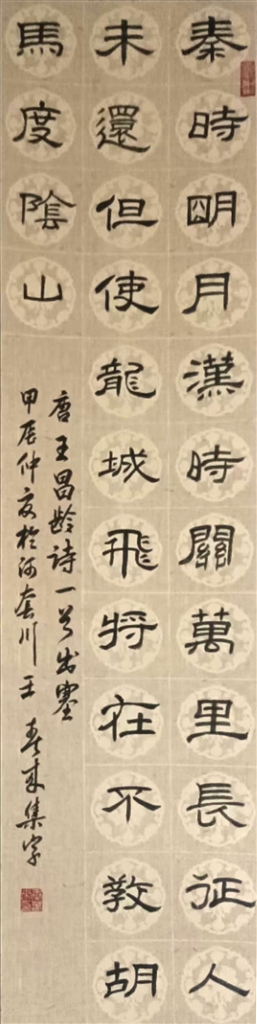 秦時明月漢時關萬里長征人
未還但使龍城飛將在不教胡
馬度陰山
唐王昌齡诗一首出塞
甲辰仲夏於河套川王春来集字